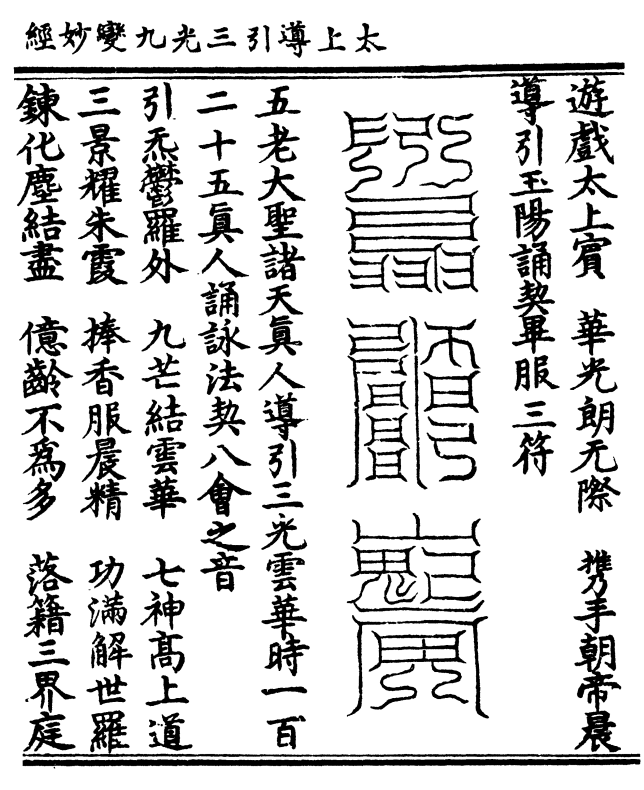 太上導引三光九變妙經
遊戲太上賓　華光朗无際　携手朝帝晨
導引玉陽誦契畢服三符
五老大聖諸天眞人導引三光雲華時一百
二十五眞人誦詠法契八會之音
引炁鬱羅外　九芒結雲華　七神髙上道
三景耀朱霞　捧香服晨精　功滿解世羅
鍊化塵結盡　億齡不爲多　落籍三界庭